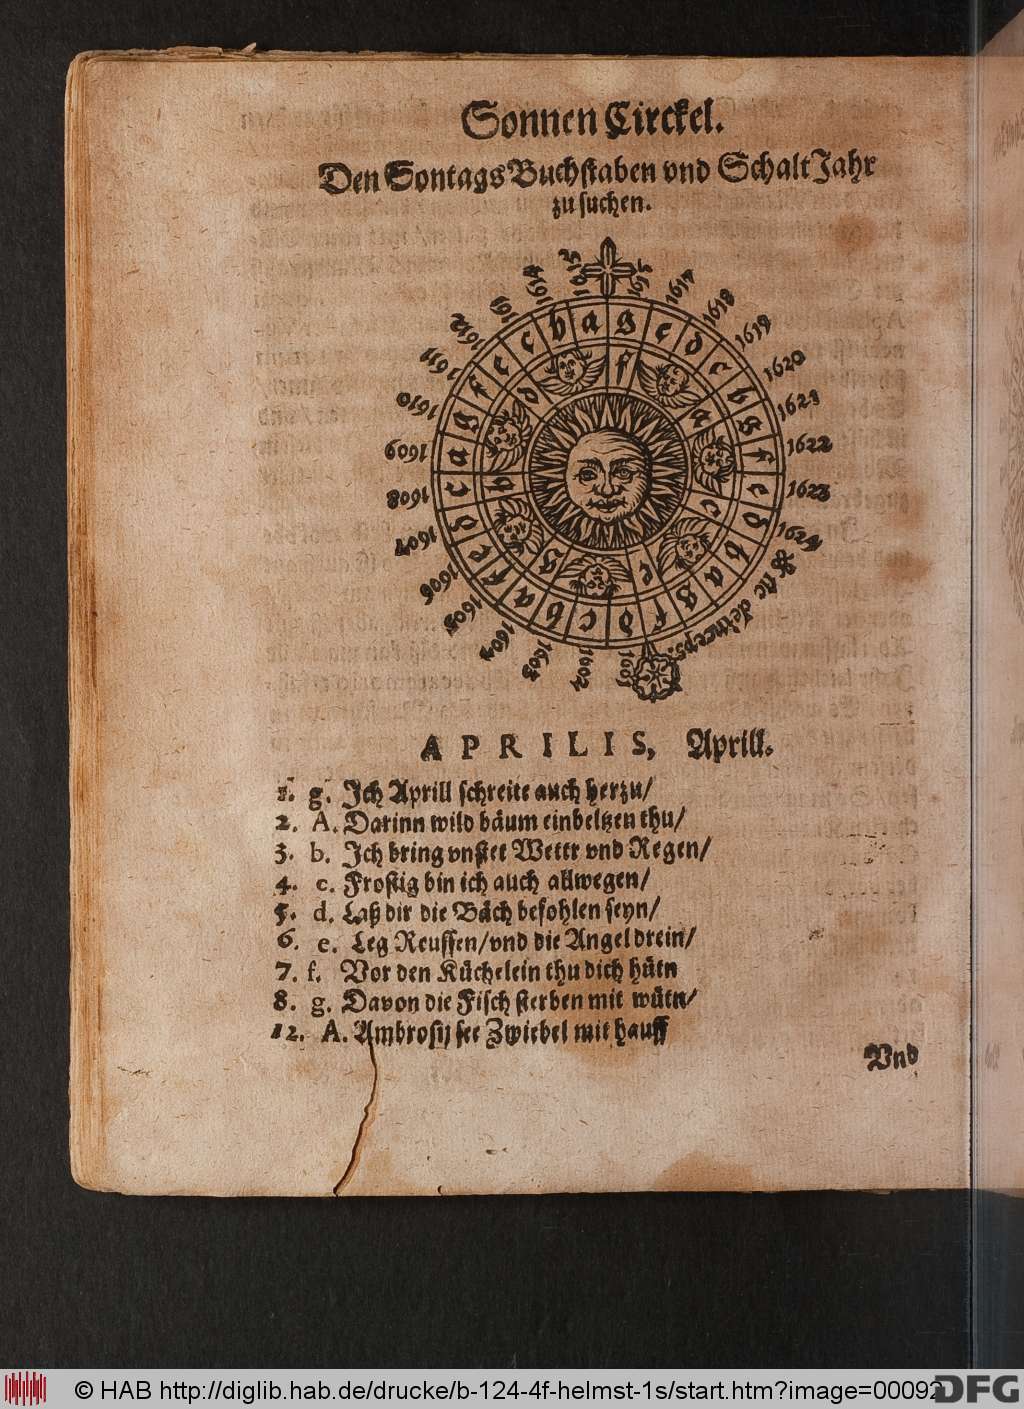 Sonnen Circkel.
Den Sontags Buchstaben vnd Schalt Jahr
zu suchen.
1615
1614
1618
1619
1620
1621
1622
1623
1624
& sic deinceps.
1601
1602
1603
1604
1605
1606
1607
1608
1609
1610
1611
1612
1613
1614
1615
g e d c b g f e d b a g f d c b a f e d c a g f e c b a
f a c e g b d
APRILIS, Aprill.
1. g. Ich Aprill schreite auch herzu/
2. A. Darinn wild bäum einbeltzen thu/
3. b. Ich bring vnstet Wettr vnd Regen/
4. c. Frostig bin ich auch allwegen/
5. d. Laß dir die Bäch befohlen seyn/
6. e. Leg Reussen/vnd die Angel drein/
7. f. Vor den Küchelein thu dich hütn
8. g. Davon die Fisch sterben mit wütn/
12. A. Ambrosij see Zwiebel mit hauff
Vnd
© HAB http://diglib.hab.de/drucke/b-124-4f-helmst-1s/start.htm?image=00092
DFG